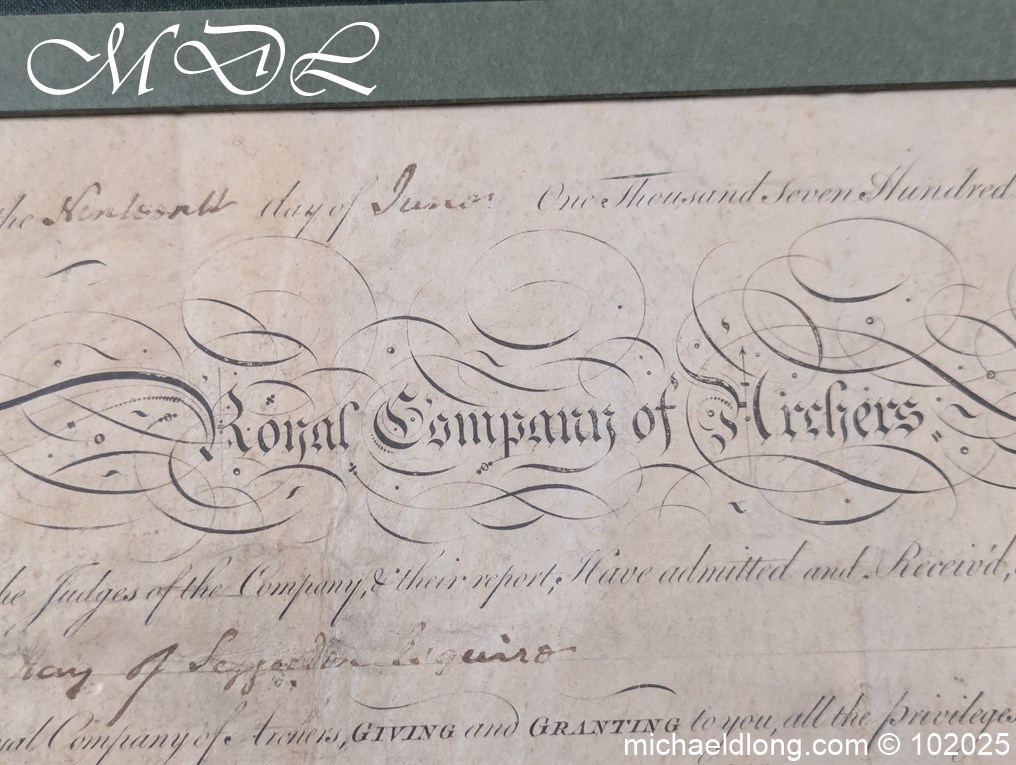 MDL
the Ninteenth day of June One Thousand Seven Hundred
Royal Company of Archers
the Judges of the Company, & their report; Have admitted and Receiv'd,
ray of Esquire
yal Company of Archers, GIVING and GRANTING to you, all the privileges
michaeldlong.com © 102025